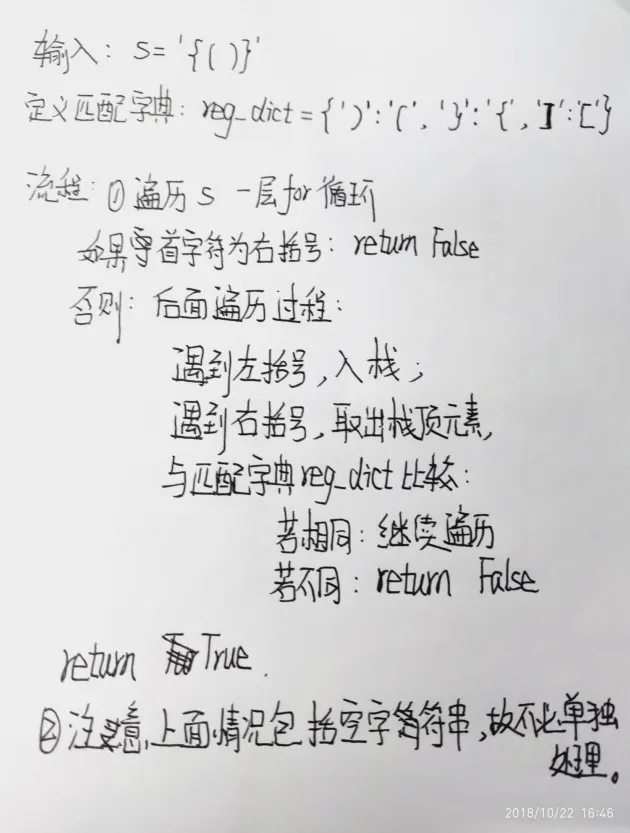 输入: S='{()}'
定义匹配字典: reg_dict={')':'(','}':'{',']':'['}
流程: ① 遍历 S 一层for循环
如果首字符为右括号: return False
否则: 后面遍历过程:
遇到左括号,入栈;
遇到右括号,取出栈顶元素,
与匹配字典reg_dict比较:
若相同: 继续遍历
若不同: return False
return True.
② 注意,上面情况包括空字符串,故不必单独
处理。
2018/10/22 16:46